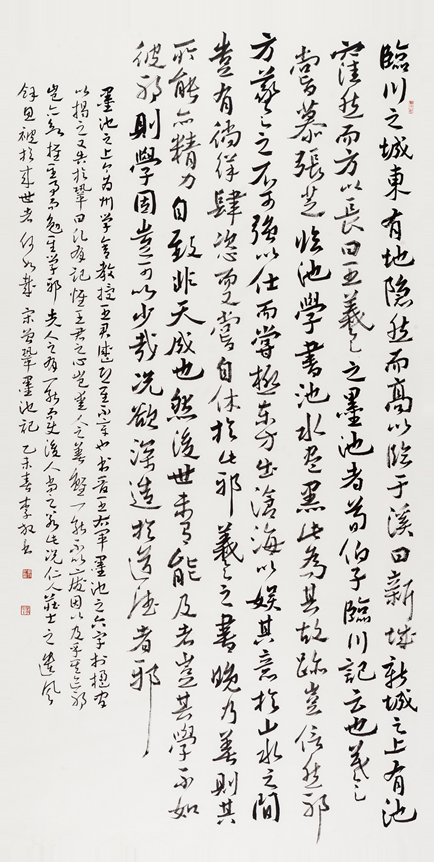 臨川之城東有地隱然而高以臨于溪曰新城新城之上有池
窪然而方以長曰王羲之之墨池者荀伯子臨川記云也羲之
嘗慕張芝臨池學書池水盡黑此為其故跡豈信然邪
方羲之之不可強以仕而嘗極東方出滄海以娛其意於山水之間
豈有徜徉肆恣而又嘗自休於此邪羲之之書晚乃善則其
所能亦精力自致非天成也然後世未有能及者豈其學不如
彼邪則學固豈可以少哉況欲深造於道德者邪
墨池之上今為州學舍教授王君盛恐其不章也書晉王右軍墨池之六字於楹間
以揭之又告於鞏曰願有記惟王君之心豈愛人之善雖一能不以廢因以及乎其跡邪
豈亦欲推其事而勉其學邪夫人之有一能而使後人尚之若此況仁人莊士之遺風
餘思被於來世者何如哉 宋曾鞏墨池記 乙未春李